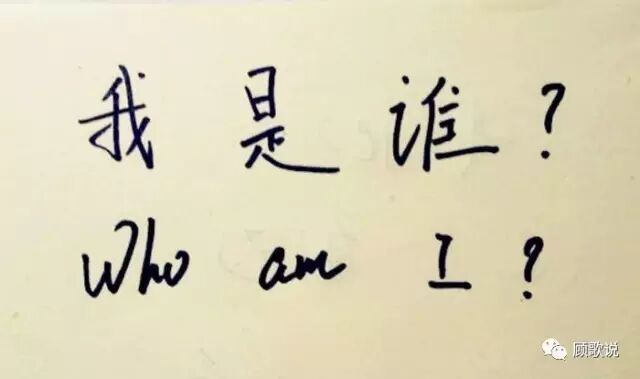 我是谁？
Who am I?
顾歌说